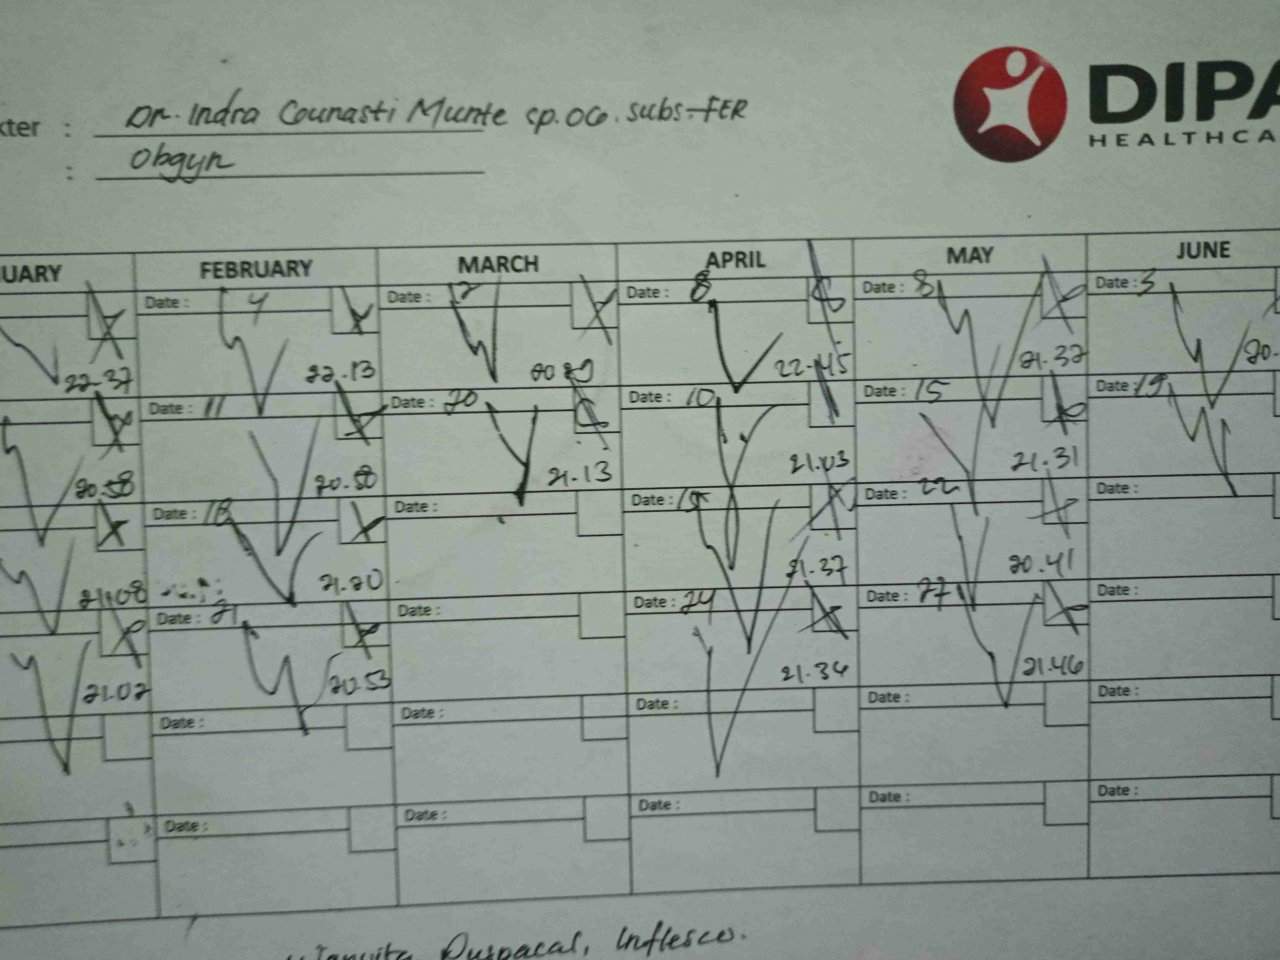 DIPA
HEALTHCA
kter : Dr. Indra Counasti Munte sp.OG. subs-FER
: Obgyn
UARY FEBRUARY MARCH APRIL MAY JUNE
Date : 4 Date : Date : 8 Date : 8 Date : 5
22.37 22.13 22.45 21.32 20.
Date : 11 Date : 20 Date : 10 Date : 15 Date : 19
20.58 20.50 21.13 21.03 21.31
Date : 18 Date : Date : 15 Date : 22 Date :
21.08 21.20 21.37 20.41
Date : 21 Date : Date : 24 Date : 27 Date :
21.02 20.53 21.34 21.46
Date : Date : Date : Date : Date :
Date : Date : Date : Date : Date :
Inflesco.